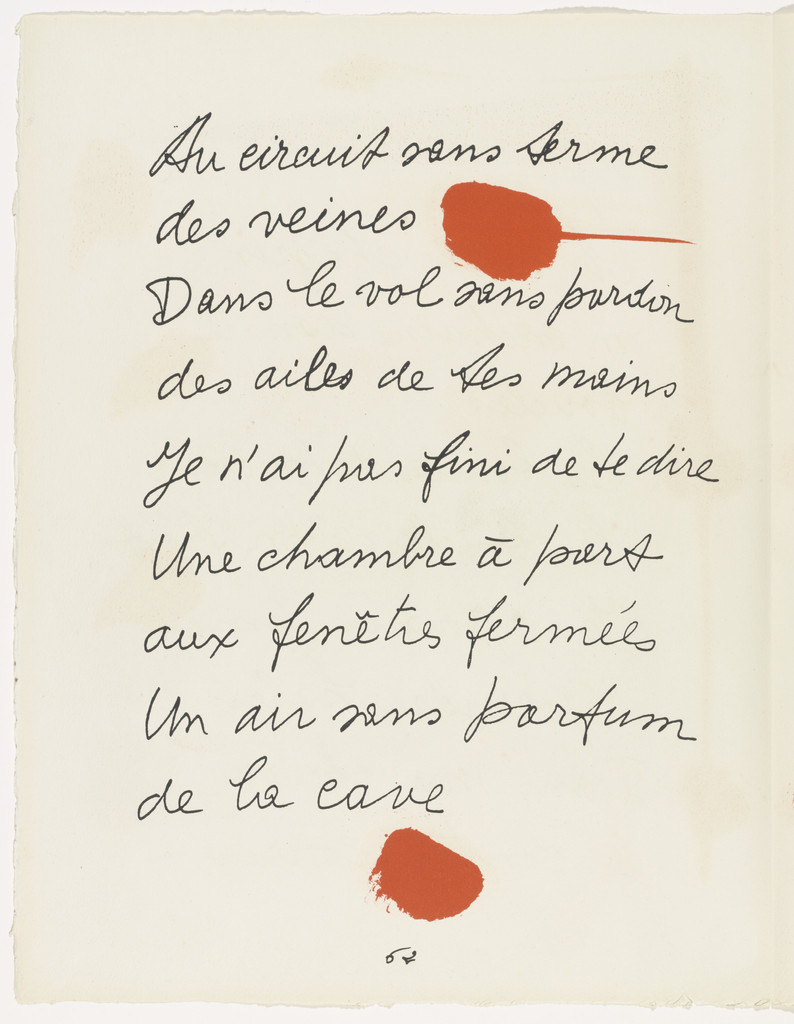 Au circuit sans terme
des veines
Dans le vol sans pardon
des ailes de tes mains
Je n'ai pas fini de te dire
Une chambre à part
aux fenêtres fermées
Un air sans parfum
de la cave
62